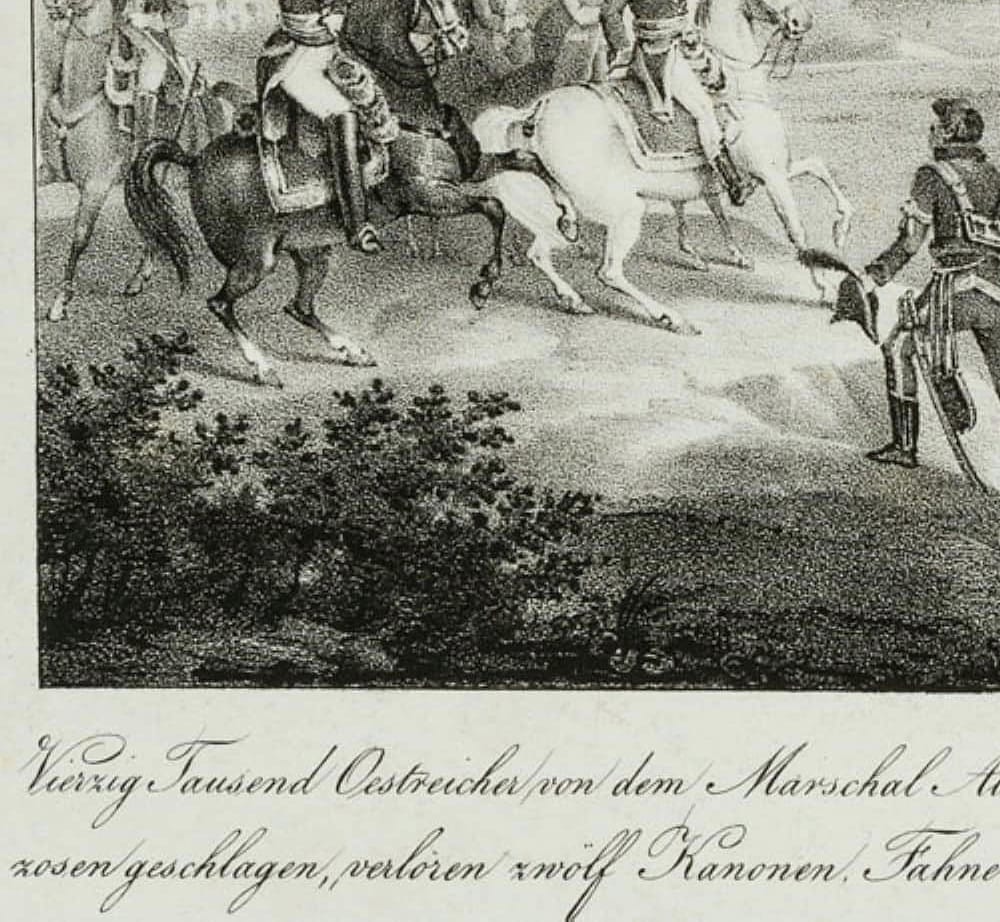 Vierzig Tausend Oestreicher von dem Marschal
zosen geschlagen, verloren zwölf Kanonen, Fahne